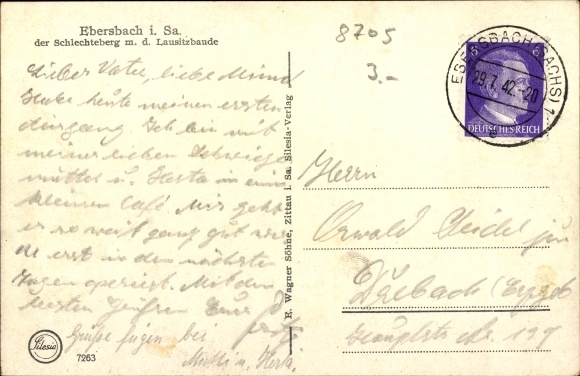 Ebersbach i. Sa.
der Schlechteberg m. d. Lausitzbaude
8705
3.-
EBERSBACH (SACHS) 1
29.7.42.-20
6 6
DEUTSCHES REICH
Lieber Vater, liebe
Habe heute meinen ersten
Ausgang Ich bin mit
meiner lieben Schwieger
mutter u. Herta in einem
kleinen Café. Mir geht
es so weit ganz gut
erst in den nächsten
Tagen operiert. Mit den
besten Grüßen Euer
Grüße fügen bei
Mutti u. Herta.
Herrn
Oswald Seidel jun
(Erzgeb
Hauptstr. No 129
E. Wagner Söhne, Zittau i. Sa. Silesia-Verlag
Silesia
7263